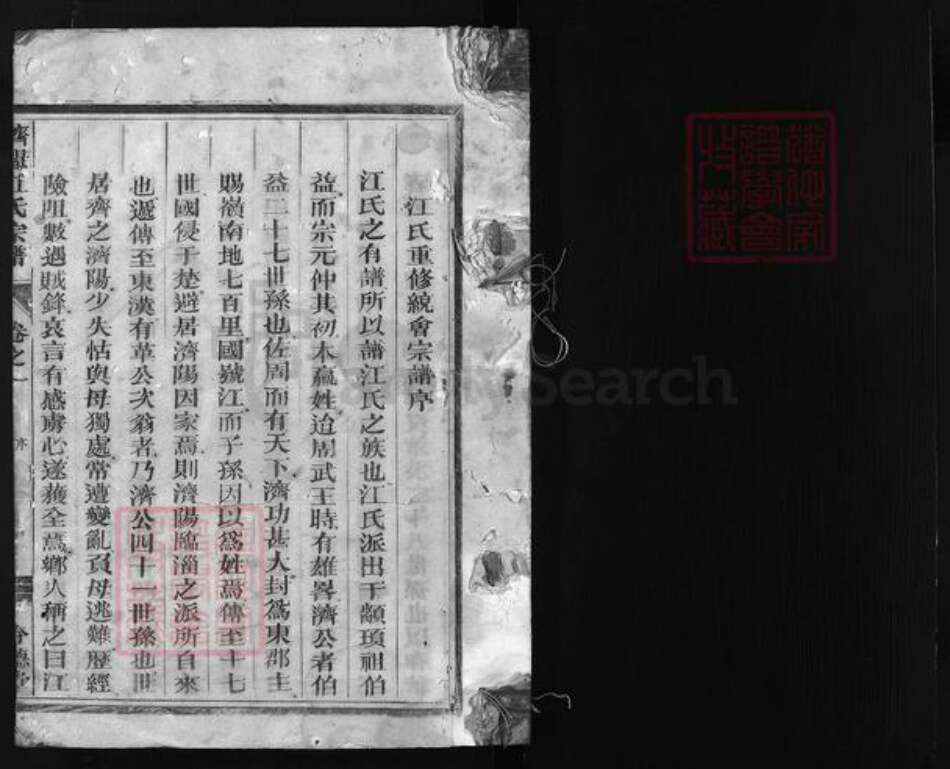 江氏重修統會宗譜序
江氏之有譜所以譜江氏之族也江氏派出于顓頊祖伯
益而宗元仲其初本嬴姓迨周武王時有雄畧濟公者伯
益二十七世孫也佐周而有天下濟功甚大封為東郡主
賜嶺南地七百里國號江而子孫因以為姓焉傳至十七
世國侵于楚避居濟陽因家焉則濟陽臨淄之派所自來
也遞傳至東漢有革公次翁者乃濟公四十一世孫也世
居齊之濟陽少失怙與母獨處常遭變亂負母逃難歷經
險阻數遇賊鋒哀言有感虜心遂獲全焉鄉人稱之曰江
濟陽江氏宗譜 卷之一 序